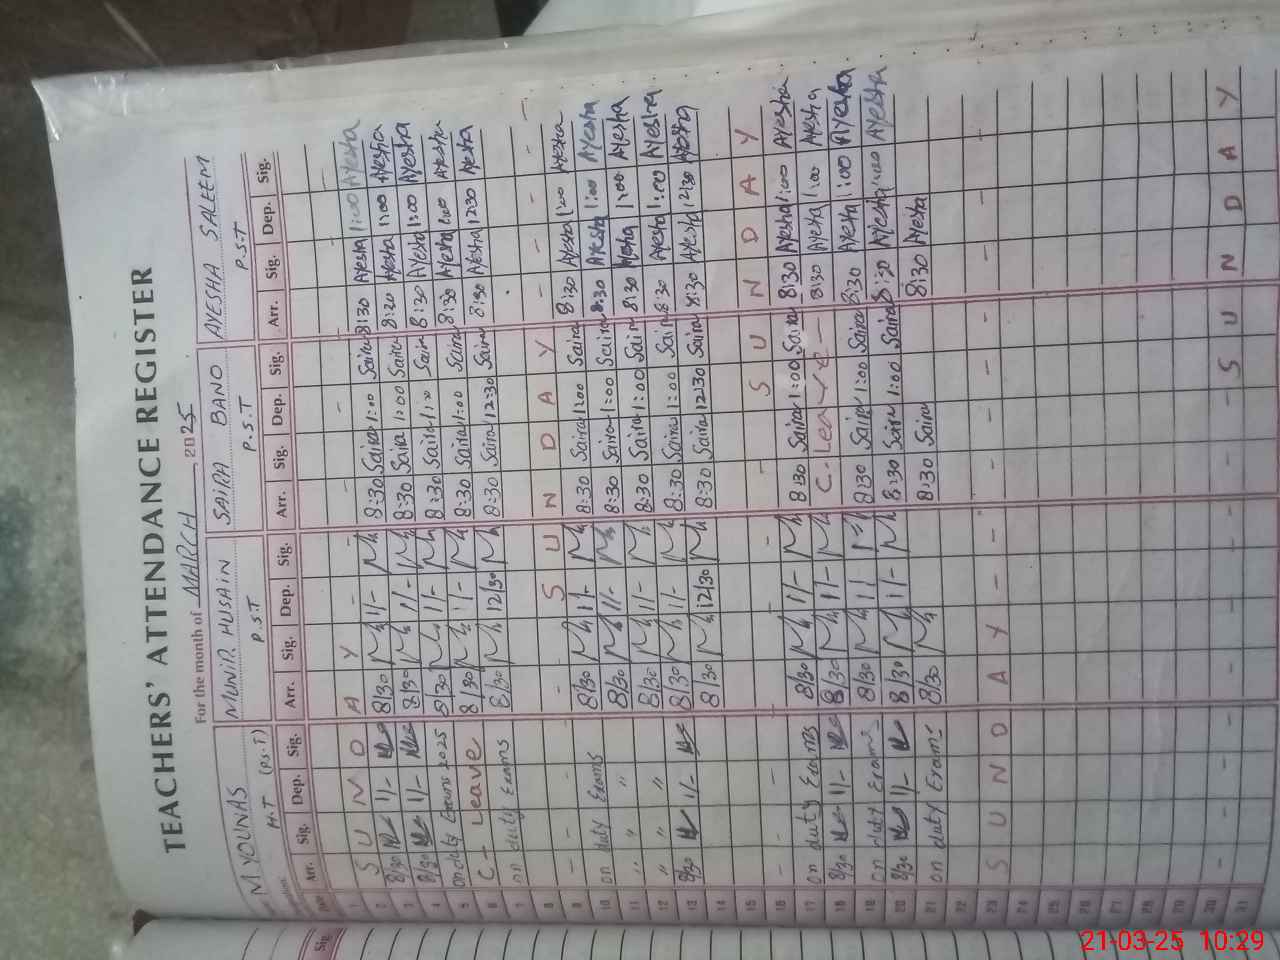 TEACHERS' ATTENDANCE REGISTER
For the month of MARCH 2025
M YOUNAS MUNIR HUSAIN SAIRA BANO AYESHA SALEEM
H.T (P.S.T) P.S.T P.S.T P.S.T
DATE Arr. Sig. Dep. Sig. Arr. Sig. Dep. Sig. Arr. Sig. Dep. Sig. Arr. Sig. Dep. Sig.
1
2 S U N D A Y
3 8/30 1/- 8/30 1/- 8:30 Saira 1:00 Saira 8:30 Ayesha 1:00 Ayesha
4 8/30 1/- 8/30 1/- 8:30 Saira 1:00 Saira 8:20 Ayesha 1:00 Ayesha
5 on duty Exams 2025 8/30 1/- 8:30 Saira 1:00 Saira 8:30 Ayesha 1:00 Ayesha
6 C- Leave 8/30 1/- 8:30 Saira 1:00 Saira 8:30 Ayesha 1:00 Ayesha
7 on duty Exams 8/30 12/30 8:30 Saira 12:30 Saira 8:30 Ayesha 12:30 Ayesha
8
9 S U N D A Y
10 on duty Exams 8/30 1/- 8:30 Saira 1:00 Saira 8:30 Ayesha 1:00 Ayesha
11 " " " 8/30 1/- 8:30 Saira 1:00 Saira 8:30 Ayesha 1:00 Ayesha
12 " " " 8/30 1/- 8:30 Saira 1:00 Saira 8:30 Ayesha 1:00 Ayesha
13 " " " 8/30 1/- 8:30 Saira 1:00 Saira 8:30 Ayesha 1:00 Ayesha
14 8/30 1/- 8/30 12/30 8:30 Saira 12:30 Saira 8:30 Ayesha 12:30 Ayesha
15
16 S U N D A Y
17 on duty Exams 8/30 1/- 8:30 Saira 1:00 Saira 8:30 Ayesha 1:00 Ayesha
18 8/30 1/- 8/30 1/- C. Leave 8:30 Ayesha 1:00 Ayesha
19 on duty Exams 8/30 1/- 8:30 Saira 1:00 Saira 8:30 Ayesha 1:00 Ayesha
20 8/30 1/- 8/30 1/- 8:30 Saira 1:00 Saira 8:30 Ayesha 1:00 Ayesha
21 on duty Exams 8/30 8:30 Saira 8:30 Ayesha
22
23 S U N D A Y
24
25
26
27
28
29
30 S U N D A Y
31
Sig.
21-03-25 10:29